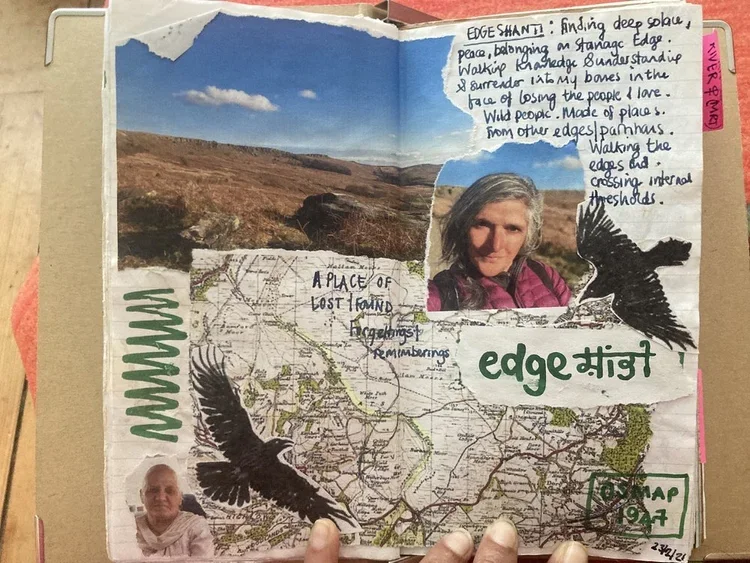 EDGE SHANTI : finding deep solace,
peace, belonging on Stanage Edge.
Walking knowledge & understanding
& surrender into my bones in the
face of losing the people I love.
Wild people. Made of places.
From other edges/
Walking the
edges and
crossing internal
thresholds.
RIVER
A PLACE OF
LOST / FOUND
Forgettings/
rememberings
edge शांती
OS MAP
1947